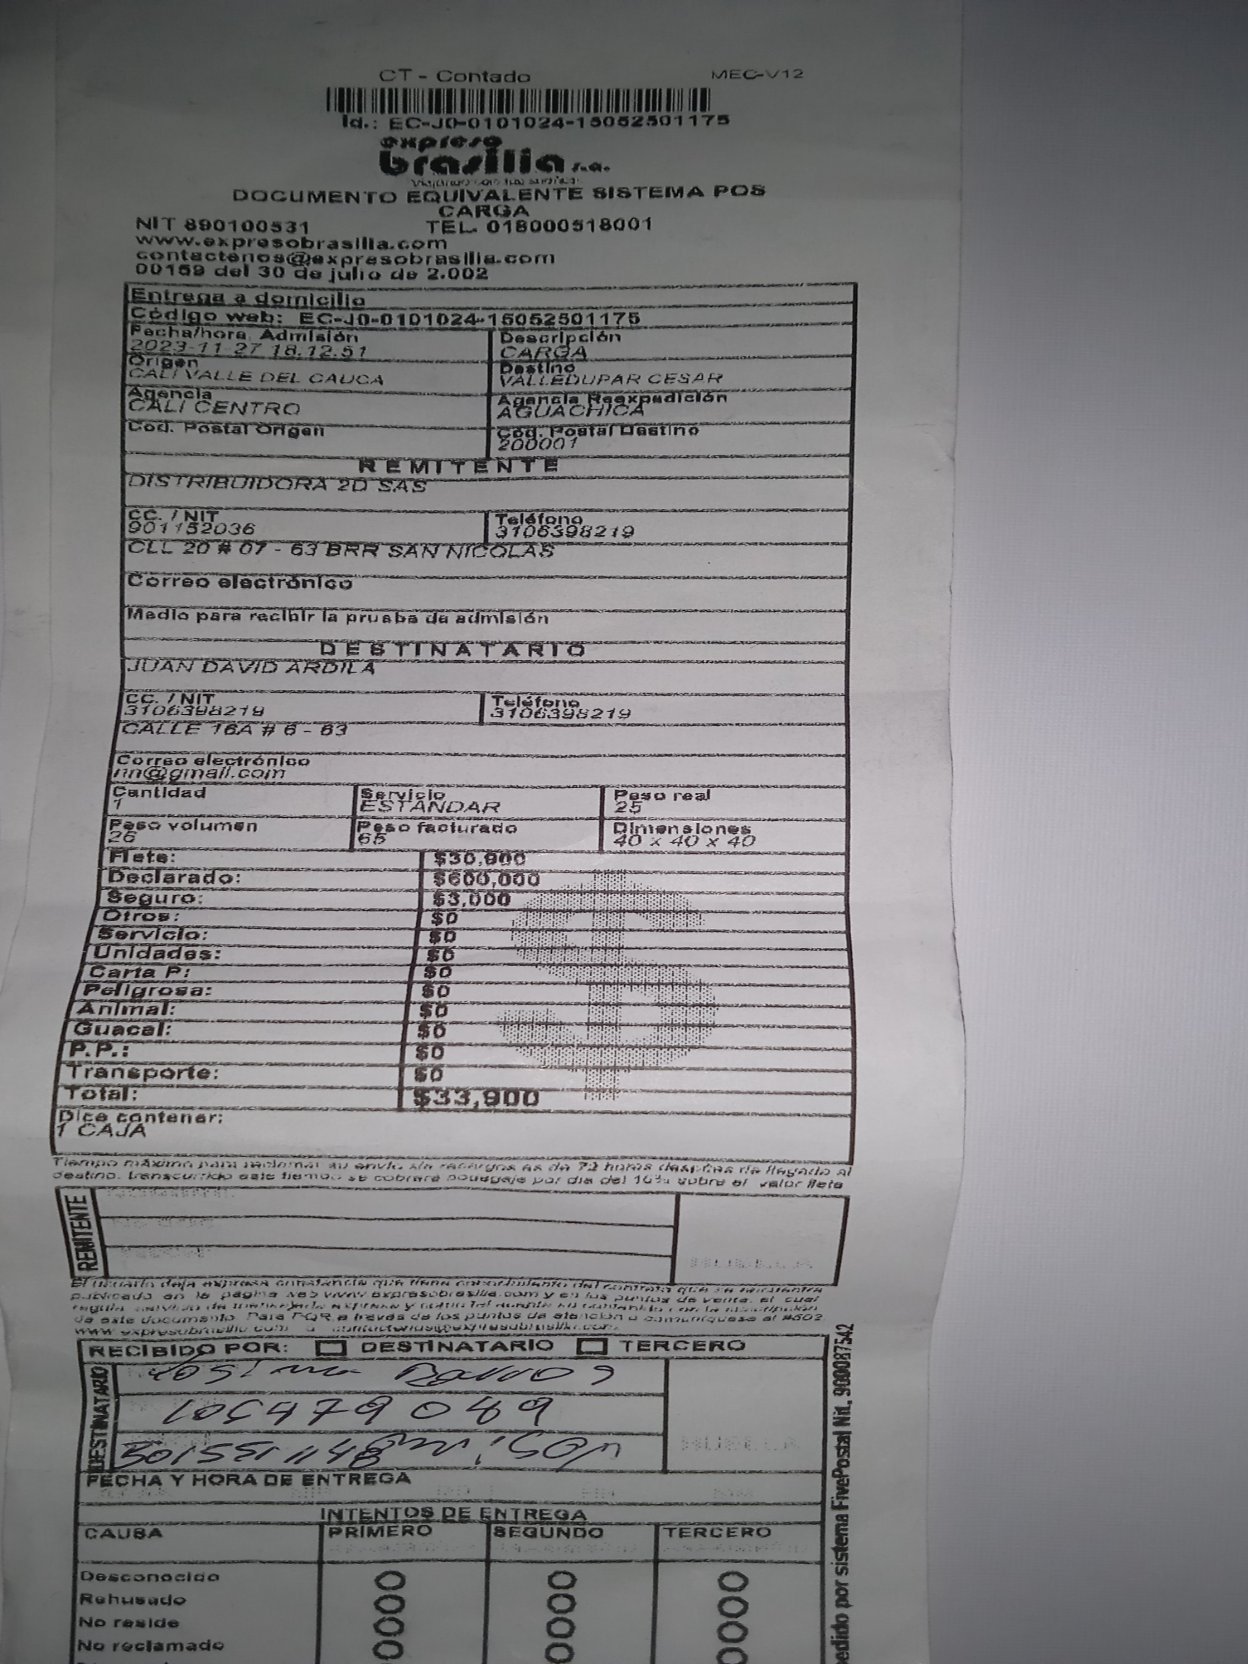 CT - Contado MEC-V12
Id.: EC-J0-0101024-15052501175
expreso
brasilia s.a.
DOCUMENTO EQUIVALENTE SISTEMA POS
CARGA
NIT 890100531 TEL. 018000518001
www.expresobrasilia.com
contactenos@expresobrasilia.com
00159 del 30 de julio de 2.002
Entrega a domicilio
Código web: EC-J0-0101024-15052501175
Fecha/hora Admisión Descripción
2023-11-27 18:12:51 CARGA
Origen Destino
CALI VALLE DEL CAUCA VALLEDUPAR CESAR
Agencia Agencia Reexpedición
CALI CENTRO AGUACHICA
Cod. Postal Origen Cod. Postal Destino
200001
REMITENTE
DISTRIBUIDORA 2D SAS
CC. / NIT Teléfono
901152036 3106398219
CLL 20 # 07 - 63 BRR SAN NICOLAS
Correo electrónico
Medio para recibir la prueba de admisión
DESTINATARIO
JUAN DAVID ARDILA
CC. / NIT Teléfono
3106398219 3106398219
CALLE 16A # 6 - 63
Correo electrónico
nn@gmail.com
Cantidad Servicio Peso real
1 ESTANDAR 25
Peso volumen Peso facturado Dimensiones
26 65 40 x 40 x 40
Flete: $30,900
Declarado: $600,000
Seguro: $3,000
Otros: $0
Servicio: $0
Unidades: $0
Carta P: $0
Peligrosa: $0
Animal: $0
Guacal: $0
P.P.: $0
Transporte: $0
Total: $33,900
Dice contener:
1 CAJA
Tiempo máximo para reclamar su envío sin recargos es de 72 horas después de llegado al
destino, transcurrido este tiempo se cobrará bodegaje por día del 10% sobre el valor flete
REMITENTE
El usuario deja expresa constancia que tiene conocimiento del contrato que se encuentra
publicado en la página web www.expresobrasilia.com y en los puntos de venta, el cual
regula
de este documento. Para PQR a través de los puntos de atención o comuníquese al #502
RECIBIDO POR: DESTINATARIO TERCERO
DESTINATARIO
FECHA Y HORA DE ENTREGA
INTENTOS DE ENTREGA
CAUSA PRIMERO SEGUNDO TERCERO
Desconocido
Rehusado
No reside
No reclamado
edido por sistema FivePostal Nit. 900087542